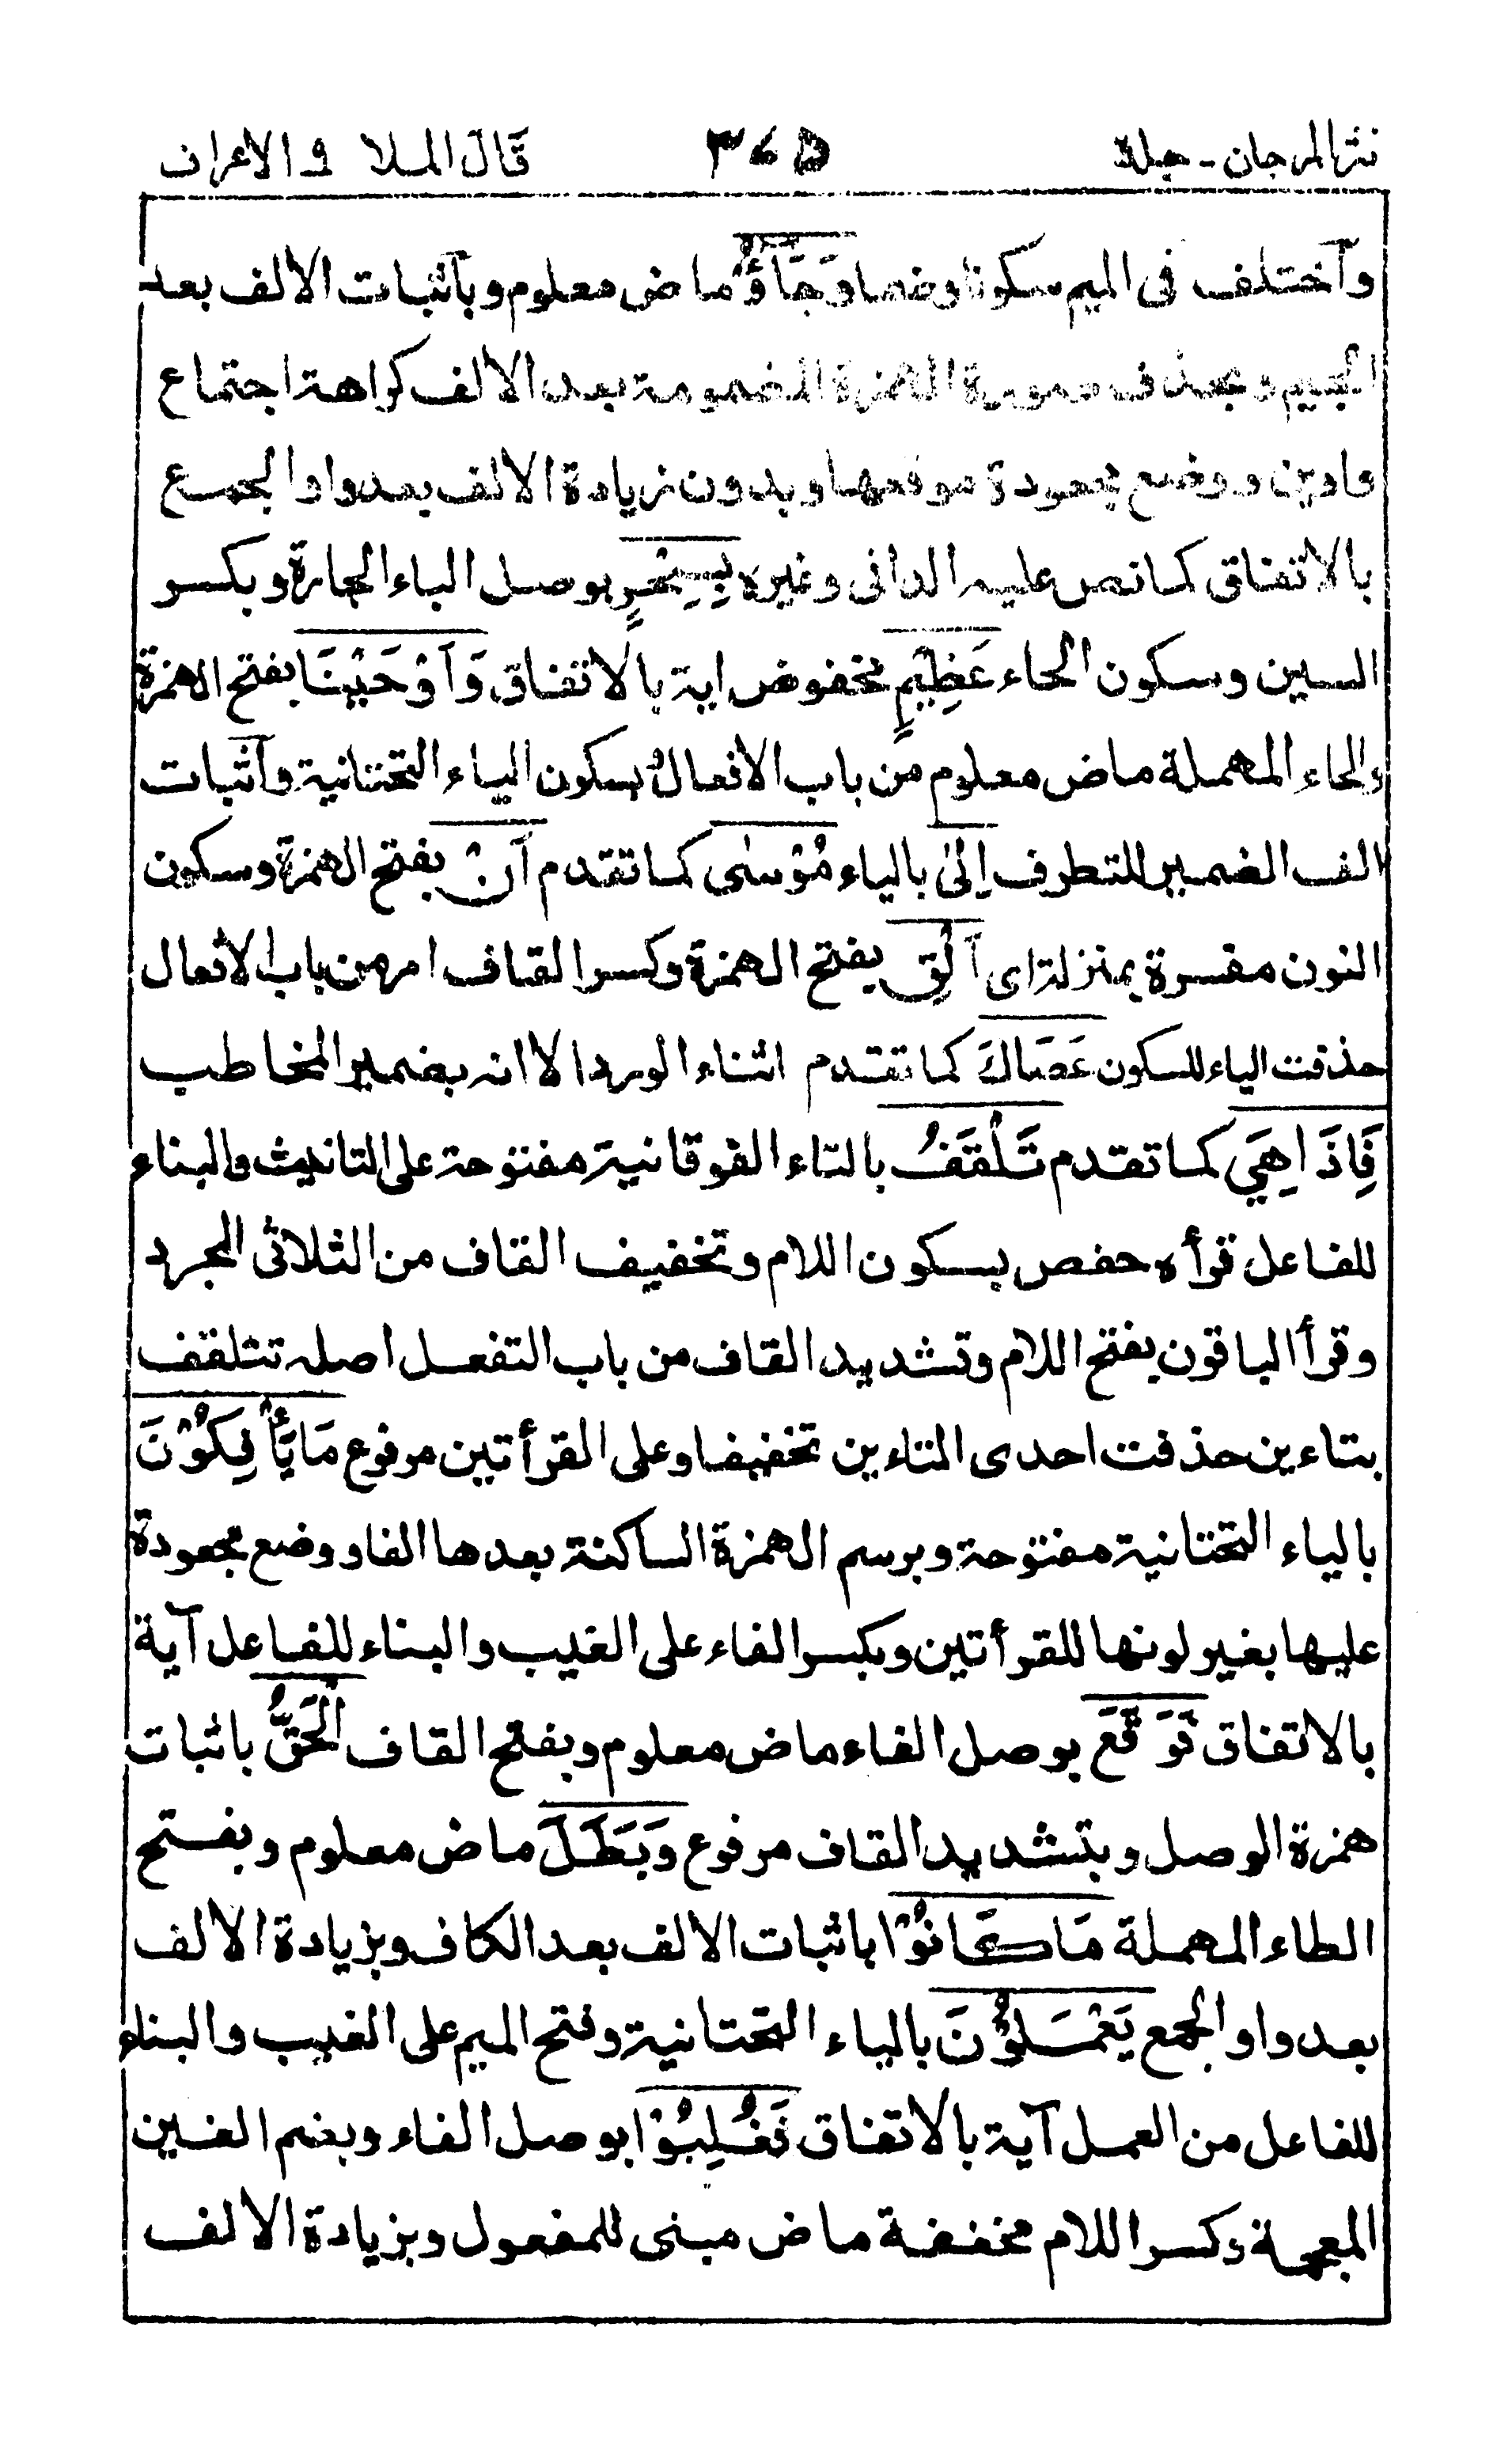 نثر المرجان - جلد٢ ٣٧٥ قَالَ الملا ٩ الاعراف
وآختلف فى الميم سكونا وضما وَجَاؤُ ماض معلوم وبآثبات الالف بعد
الجيم وبحذف صورة الهمزة المضمومة بعد الالف كراهة اجتماع
واوين ووضع مجعودة موقعها وبدون زيادة الالف بعد واو الجمع
بالاتفاق كما نص عليه الدانى وغيره بِسِحْرٍ بوصل الباء الجارة وبكسر
السين وسكون الحاء عَظِيْمٍ مخفوض اية بالاتفاق وَآوْحَيْنَا بفتح الهمزة
والحاء المهملة ماض معلوم من باب الافعال وبسكون الياء التحتانية وآثبات
الف الضمير للتطرف اِلىٰ بالياء مُوْسىٰ كما تقدم آنْ بفتح الهمزة وسكون
النون مفسرة بمنزلة اى آلْقِ بفتح الهمزة وكسر القاف امر من باب الافعال
حذفت الياء للسكون عَصَاكَ كما تقدم اثناء الورد الا انه بضمير المخاطب
فَاِذَا هِيَ كما تقدم تَلْقَفُ بالتاء الفوقانية مفتوحة على التانيث والبناء
للفاعل قرأه حفص بسكون اللام وتخفيف القاف من الثلاثى المجرد
وقرأ الباقون بفتح اللام وتشديد القاف من باب التفعل اصله تتلقف
بتاءين حذفت احدى التاءين تخفيفا وعلى القرأتين مرفوع مَا يَأْفِكُوْنَ
بالياء التحتانية مفتوحة وبرسم الهمزة الساكنة بعدها الفا ووضع مجعودة
عليها بغير لونها للقرأتين وبكسر الفاء على الغيب والبناء للفاعل آية
بالاتفاق فَوَقَعَ بوصل الفاء ماض معلوم وبفتح القاف الْحَقُّ باثبات
همزة الوصل وبتشديد القاف مرفوع وَبَطَلَ ماض معلوم وبفتح
الطاء المهملة مَا كَانُوْا باثبات الالف بعد الكاف وبزيادة الالف
بعد واو الجمع يَعْمَلُوْنَ بالياء التحتانية وفتح الميم على الغيب والبناء
للفاعل من العمل آية بالاتفاق فَغُلِبُوْا بوصل الفاء وبضم الغين
المعجمة وكسر اللام مخففة ماض مبنى للمفعول وبزيادة الالف